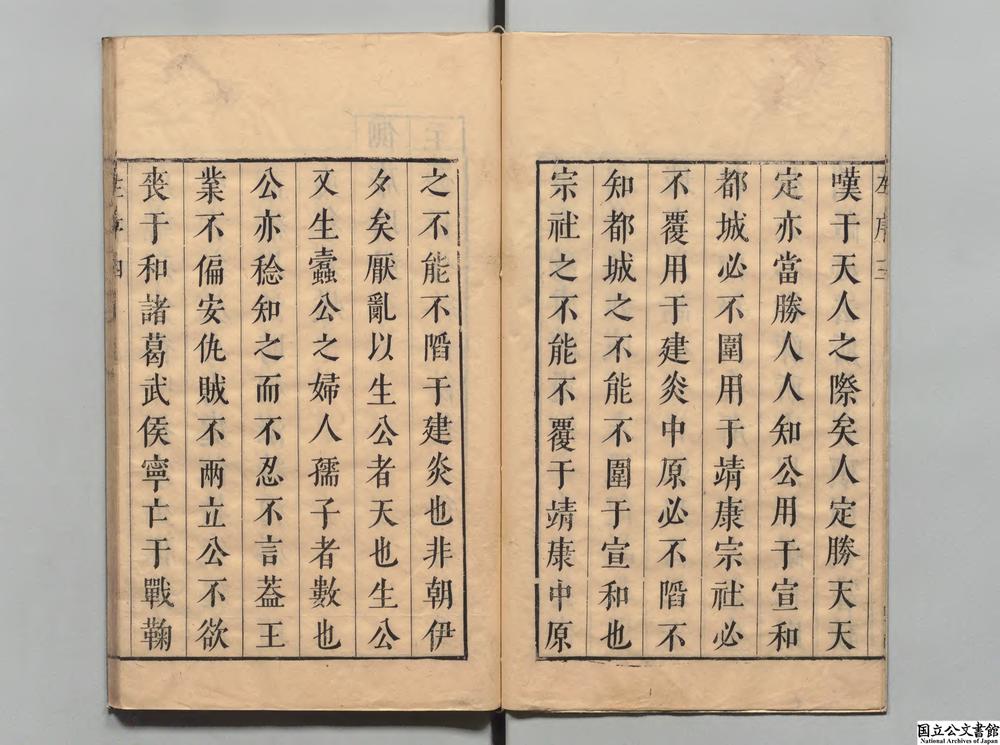 嘆于天人之際矣人定勝天天
定亦當勝人人知公用于宣和
都城必不圍用于靖康宗社必
不覆用于建炎中原必不㴙不
知都城之不能不圍于宣和也
宗社之不能不覆于靖康中原
之不能不㴙于建炎也非朝伊
夕矣厭亂以生公者天也生公
又生蠹公之婦人孺子者數也
公亦稔知之而不忍不言葢王
業不偏安仇賊不兩立公不欲
喪于和諸葛武侯寧亡于戰鞠
序三
国立公文書館
National Archives of Japan